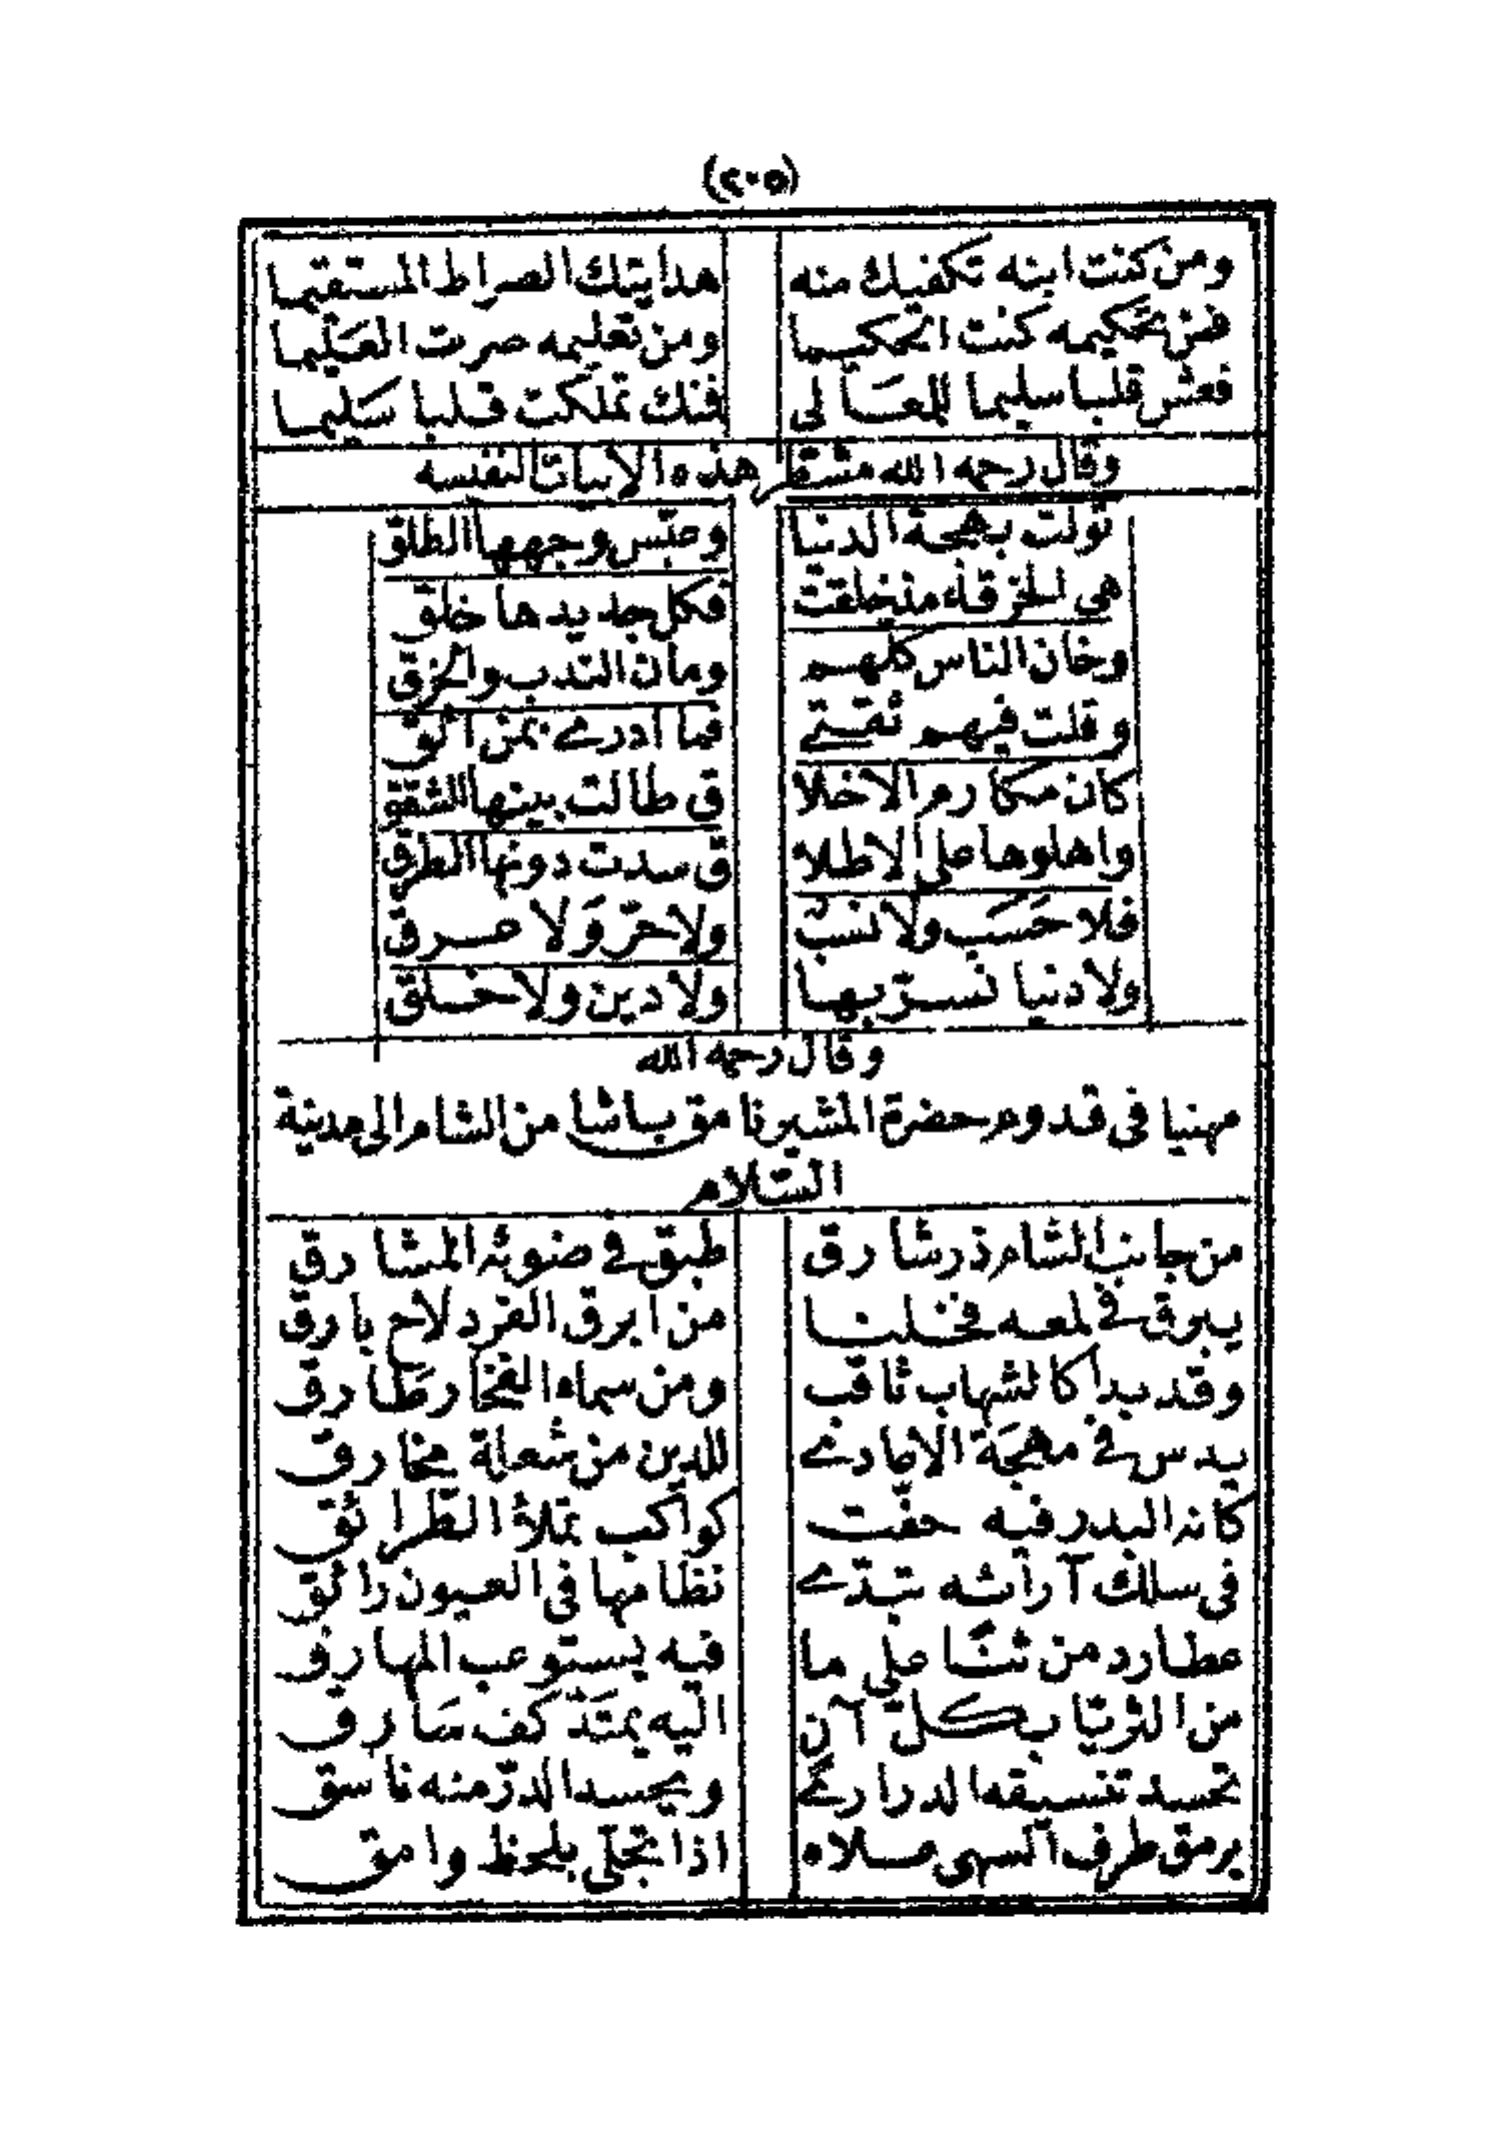 (٢٠٥)
ومن كنت ابنه تكفيك منه هدايتك الصراط المستقيما
فمن تحكيمه كنت الحكيما ومن تعليمه صرت العليما
فعش قلبا سليما للمعالى فمنك تملكت قلبا سليما
وقال رحمه الله مشطر هذه الابيات النفسه
تولت بهجة الدنيا وعبّس وجهها الطلق
هي الخرقاء منذ خلقت فكل جديدها خلق
وخان الناس كلهم ومان الندب والخرق
وقلت فيهم ثقتى فما ادرى بمن اثق
كان مكارم الاخلا ق طالت بينها الشقق
واهلوها على الاطلا ق سدت دونها الطرق
فلا حسب ولا نسب ولا حرّ ولا عرق
ولا دنيا نسرّ بها ولا دين ولا خلق
وقال رحمه الله
مهنيا فى قدوم حضرة المشير نامق باشا من الشام الى مدينة
السّلام
من جانب الشام ذر شارق طبق في ضوئه المشارق
يبرق في لمعه فخلنا من ابرق الفرد لاح بارق
وقد بدا كالشهاب ثاقب ومن سماء الفخار طارق
يدس في مهجة الاعادي للدين من شعلة مخارق
كانه البدر فيه حفّت كواكب تملاء الطّرائق
فى سلك آرائه تبدّى نظامها فى العيون رائق
عطارد من ثنا على ما فيه يستوعب المهارق
من الثريّا بكلّ آن اليه يمتدّ كف سارق
تحسد تنسيقه الدرارى ويحسد الدرّ منه ناسق
يرمق طرف السهى علاه اذا تجلّى بلحظ وامق